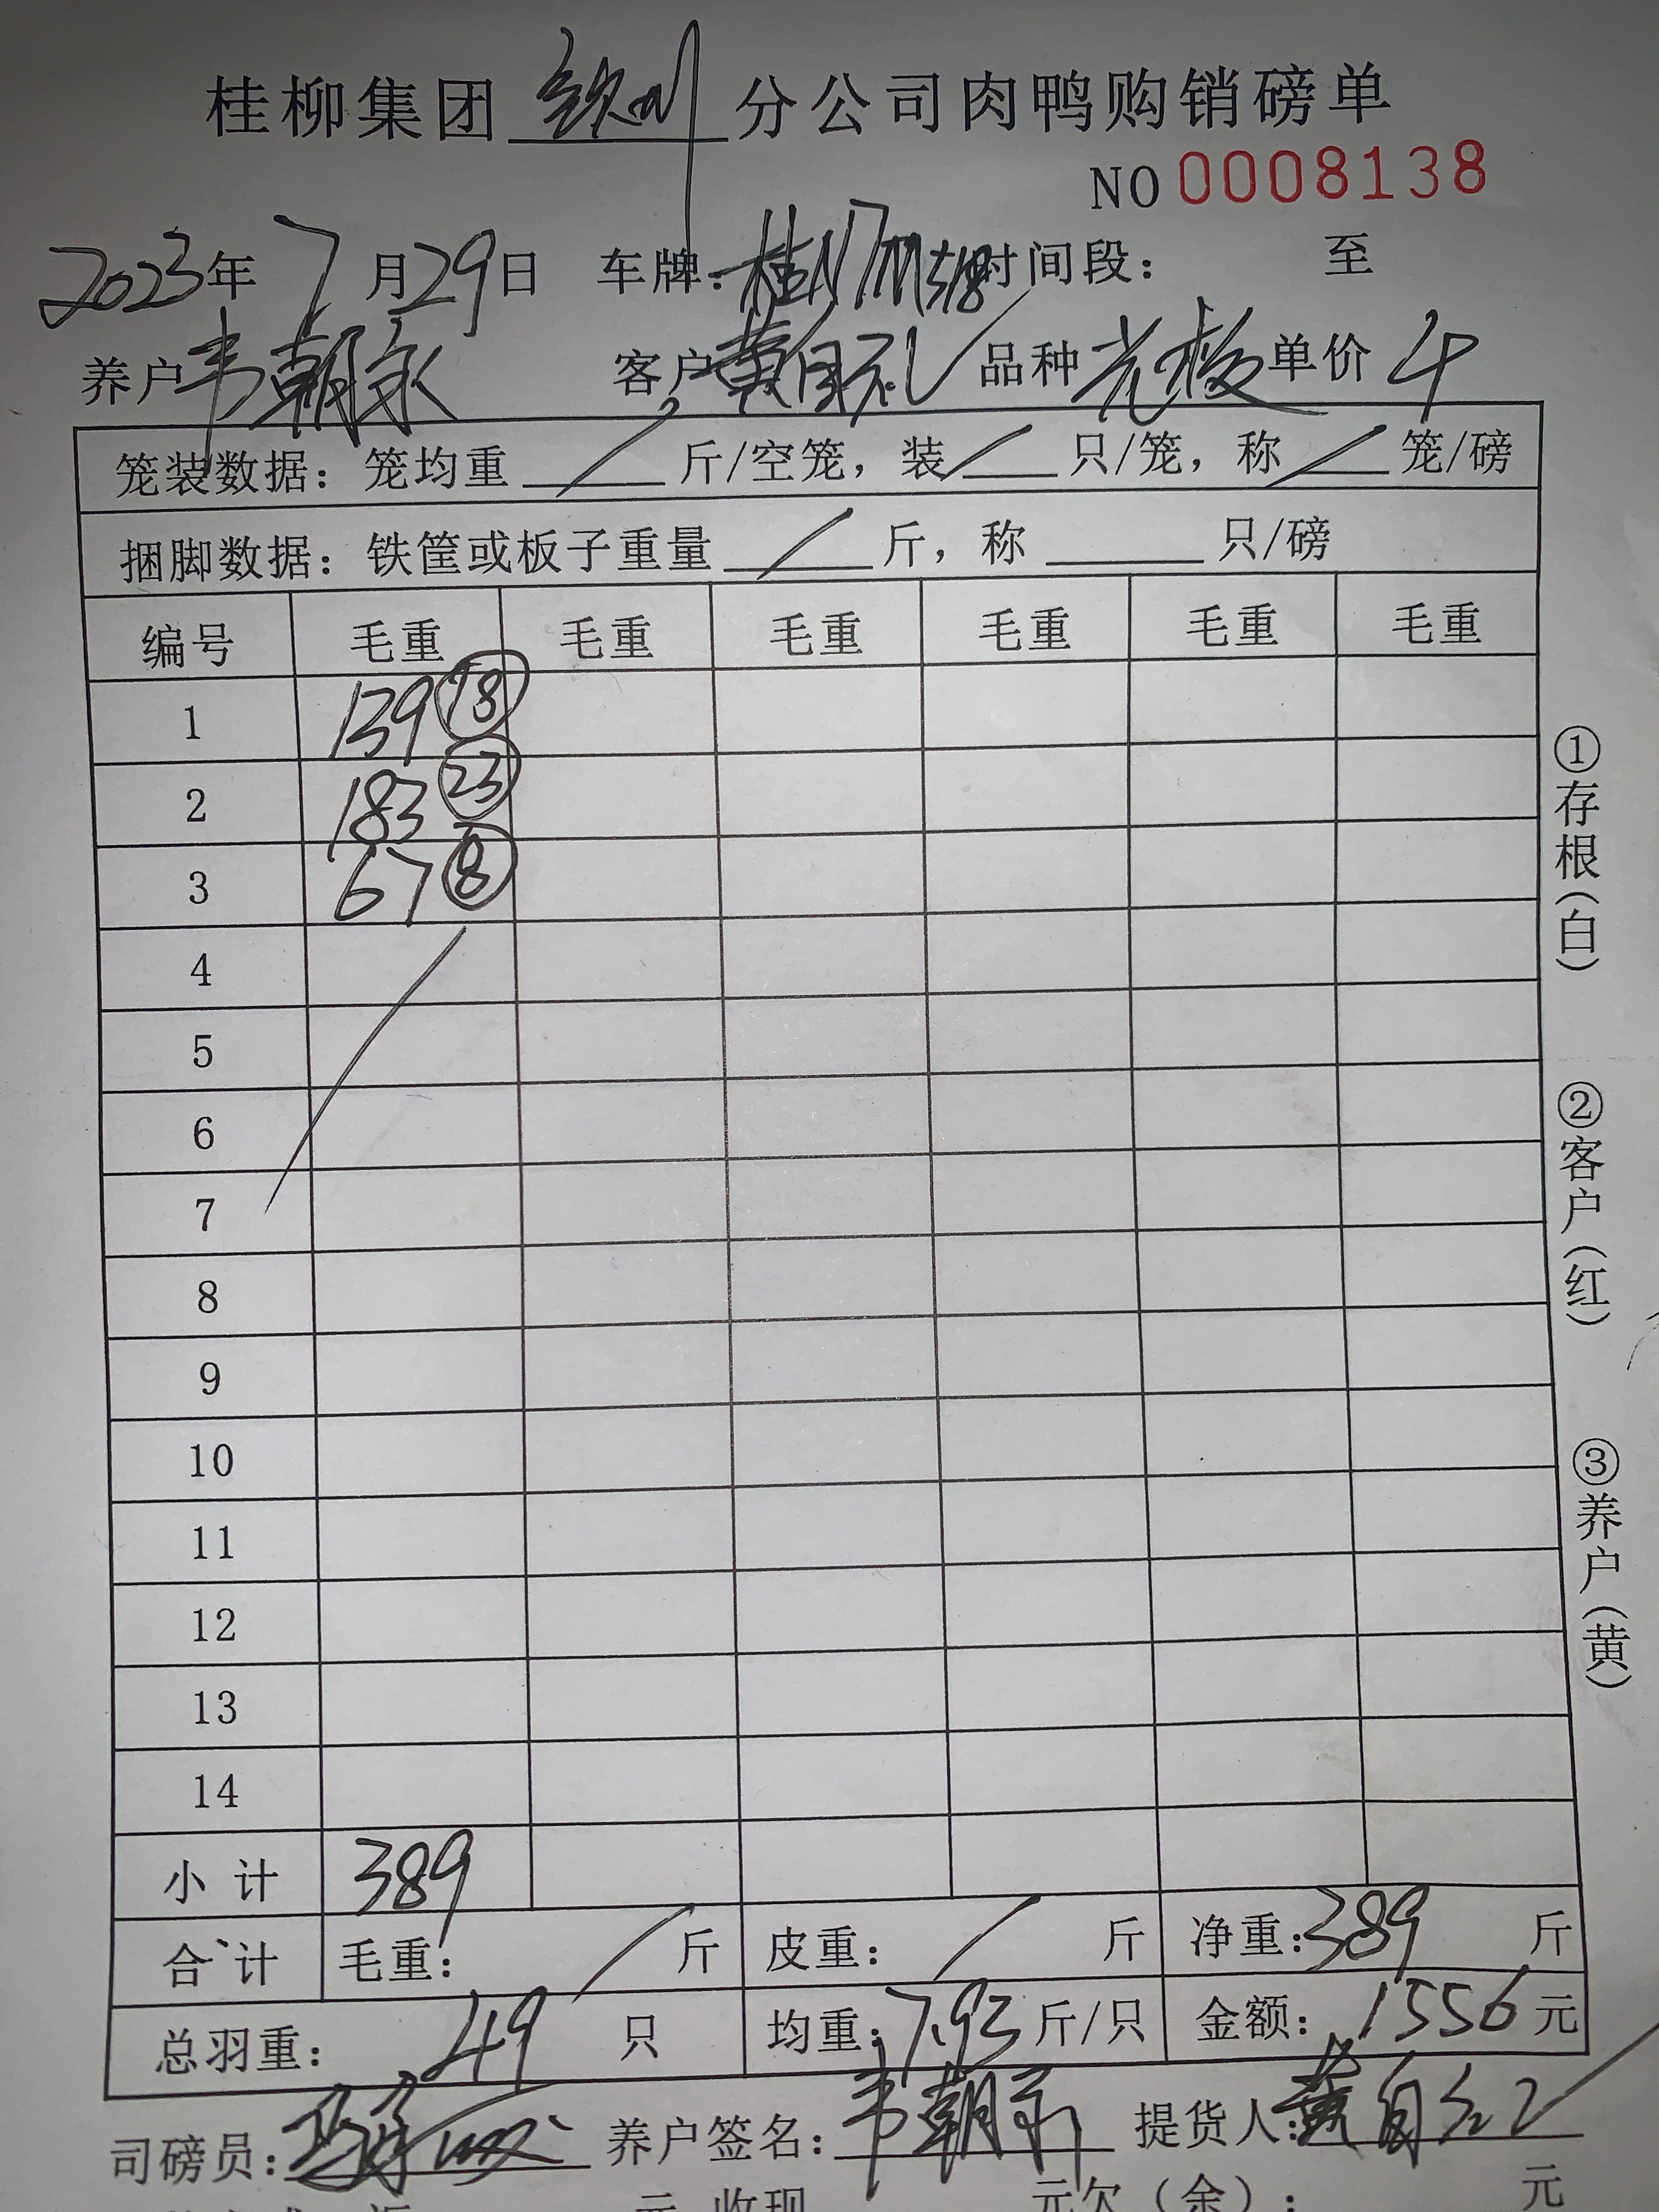 桂柳集团 钦州 分公司肉鸭购销磅单
NO 0008138
2023年 7月29日 车牌: 桂N7M518 时间段: 至
养户 韦朝永 客户 黄自礼 品种 光板 单价 4
笼装数据: 笼均重 / 斤/空笼, 装 / 只/笼, 称 / 笼/磅
捆脚数据: 铁筐或板子重量 / 斤, 称 只/磅
编号 毛重 毛重 毛重 毛重 毛重 毛重
1 139 18
2 183 23
3 67 8
4
5
6
7
8
9
10
11
12
13
14
小计 389
合计 毛重: / 斤 皮重: / 斤 净重: 389 斤
总羽重: 49 只 均重: 7.93 斤/只 金额: 1556 元
司磅员: 养户签名: 韦朝 提货人: 黄自
元 收现 元欠(余): 元
①存根(白)
②客户(红)
③养户(黄)